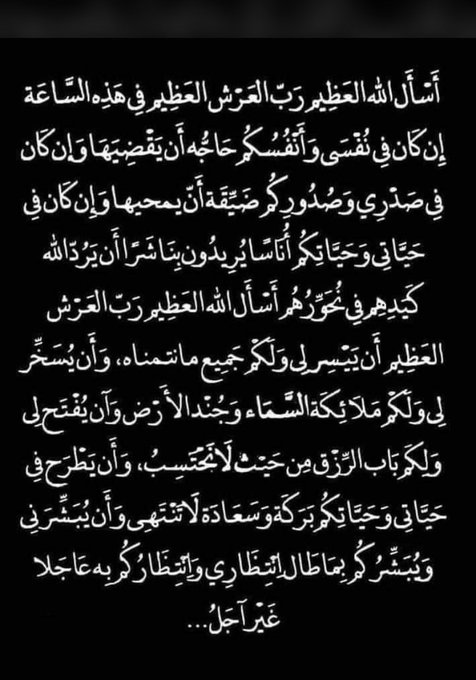 أَسْأَل الله العَظِيم رَبّ العَرْش العَظِيم فِي هَذِه السَّاعَة
إِن كَان فِي نُفْسَى وَأَنْفُسُكُم حَاجُه أَن يَقْضِيَهَا وَإِن كَان
فِي صَدْرِي وَصُدُورِكُم ضَيِّقَة أَنّ يمحيها وَإِن كَان فِي
حَيَّاتِى وَحَيَّاتِكُم أُنَاسًا يُرِيدُون بِنَا شَرًا أَن يَرُدّ الله
كَيَدِهِم فِي نُحَوِّرُهُم أَسْأَل الله العَظِيم رَبّ العَرْش
العَظِيم أَن يَيْسِر لِى وَلَكُم جَمِيع مانتمناه، وَأَن يُسَخِّر
لِى وَلَكُم مَلَائِكَة السَّمَاء وَجُنْد الأَرْض وَآن يُفْتَح لِى
وَلِكُم بَاب الرِّزْق مِن حَيْث لَا نَحْتَسِبُ، وَأَن يَطْرَح فِي
حَيَّاتِى وَحَيَّاتِكُم بَرَكَة وَسَعَادَة لَا تَنْتَهِى وَأَن يُبَشِّرَنِى
وَيُبَشِّرُكُم بِمَا طَال اِنْتِظَارِي وَاِنْتِظَارُكُم بِه عَاجَلا
غَيْر آجَلُ...